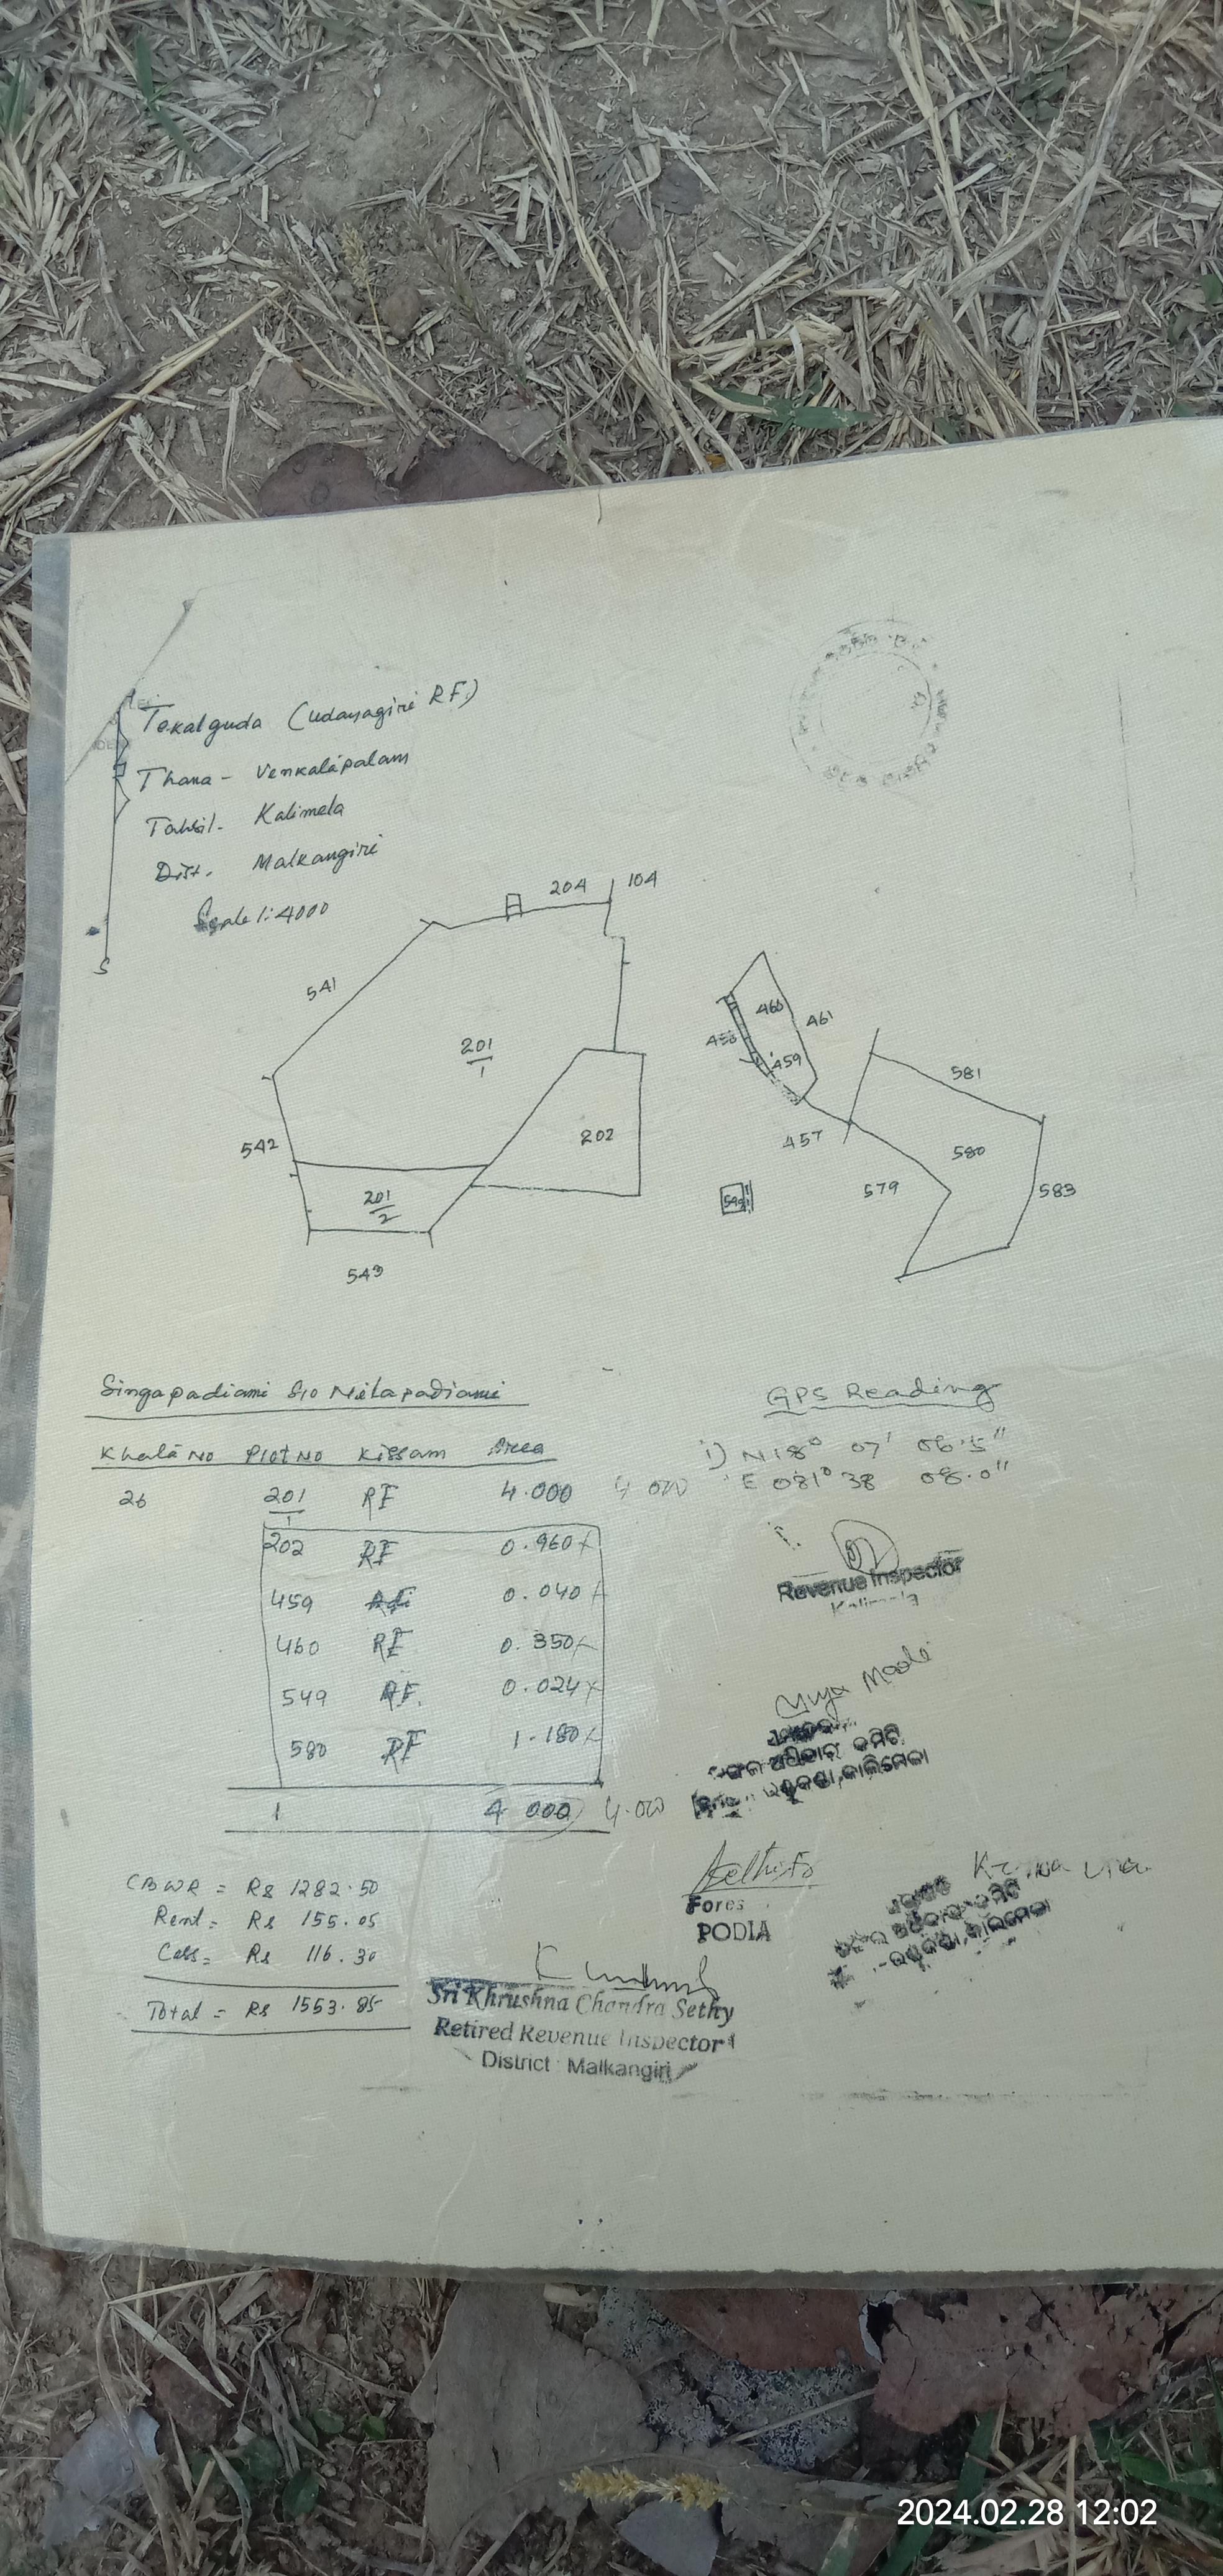 Tekalguda (Udayagiri RF)
Thana - Venkatapalam
Tahsil. Kalimela
Dist. Malkangiri
Scale 1:4000
S
204
104
541
201/1
542
202
201/2
543
460
461
458
459
457
581
580
579
583
549
Singapadiami S/o Nilapadiami
Khata No Plot No Kissam Area
26 201/1 RF 4.000 4.000
202 RF 0.960 x
459 0.040 x
460 RF 0.350 x
549 RF. 0.024 x
580 RF 1.180 x
1 4 000 4.000
GPS Reading
i) N 18° 07' 06.5"
E 081° 38 08.0"
Revenue Inspector
Kalimela
Muya Madi
ଜଙ୍ଗଲ ଅଧିକାର କମିଟି
କାଲିମେଲା
CBWR = Rs 1282.50
Rent = Rs 155.05
Cess = Rs 116.30
Total = Rs 1553.85
Fores
PODIA
Sri Khrushna Chandra Sethy
Retired Revenue Inspector
District Malkangiri
କମିଟି
କାଲିମେଲା
2024.02.28 12:02